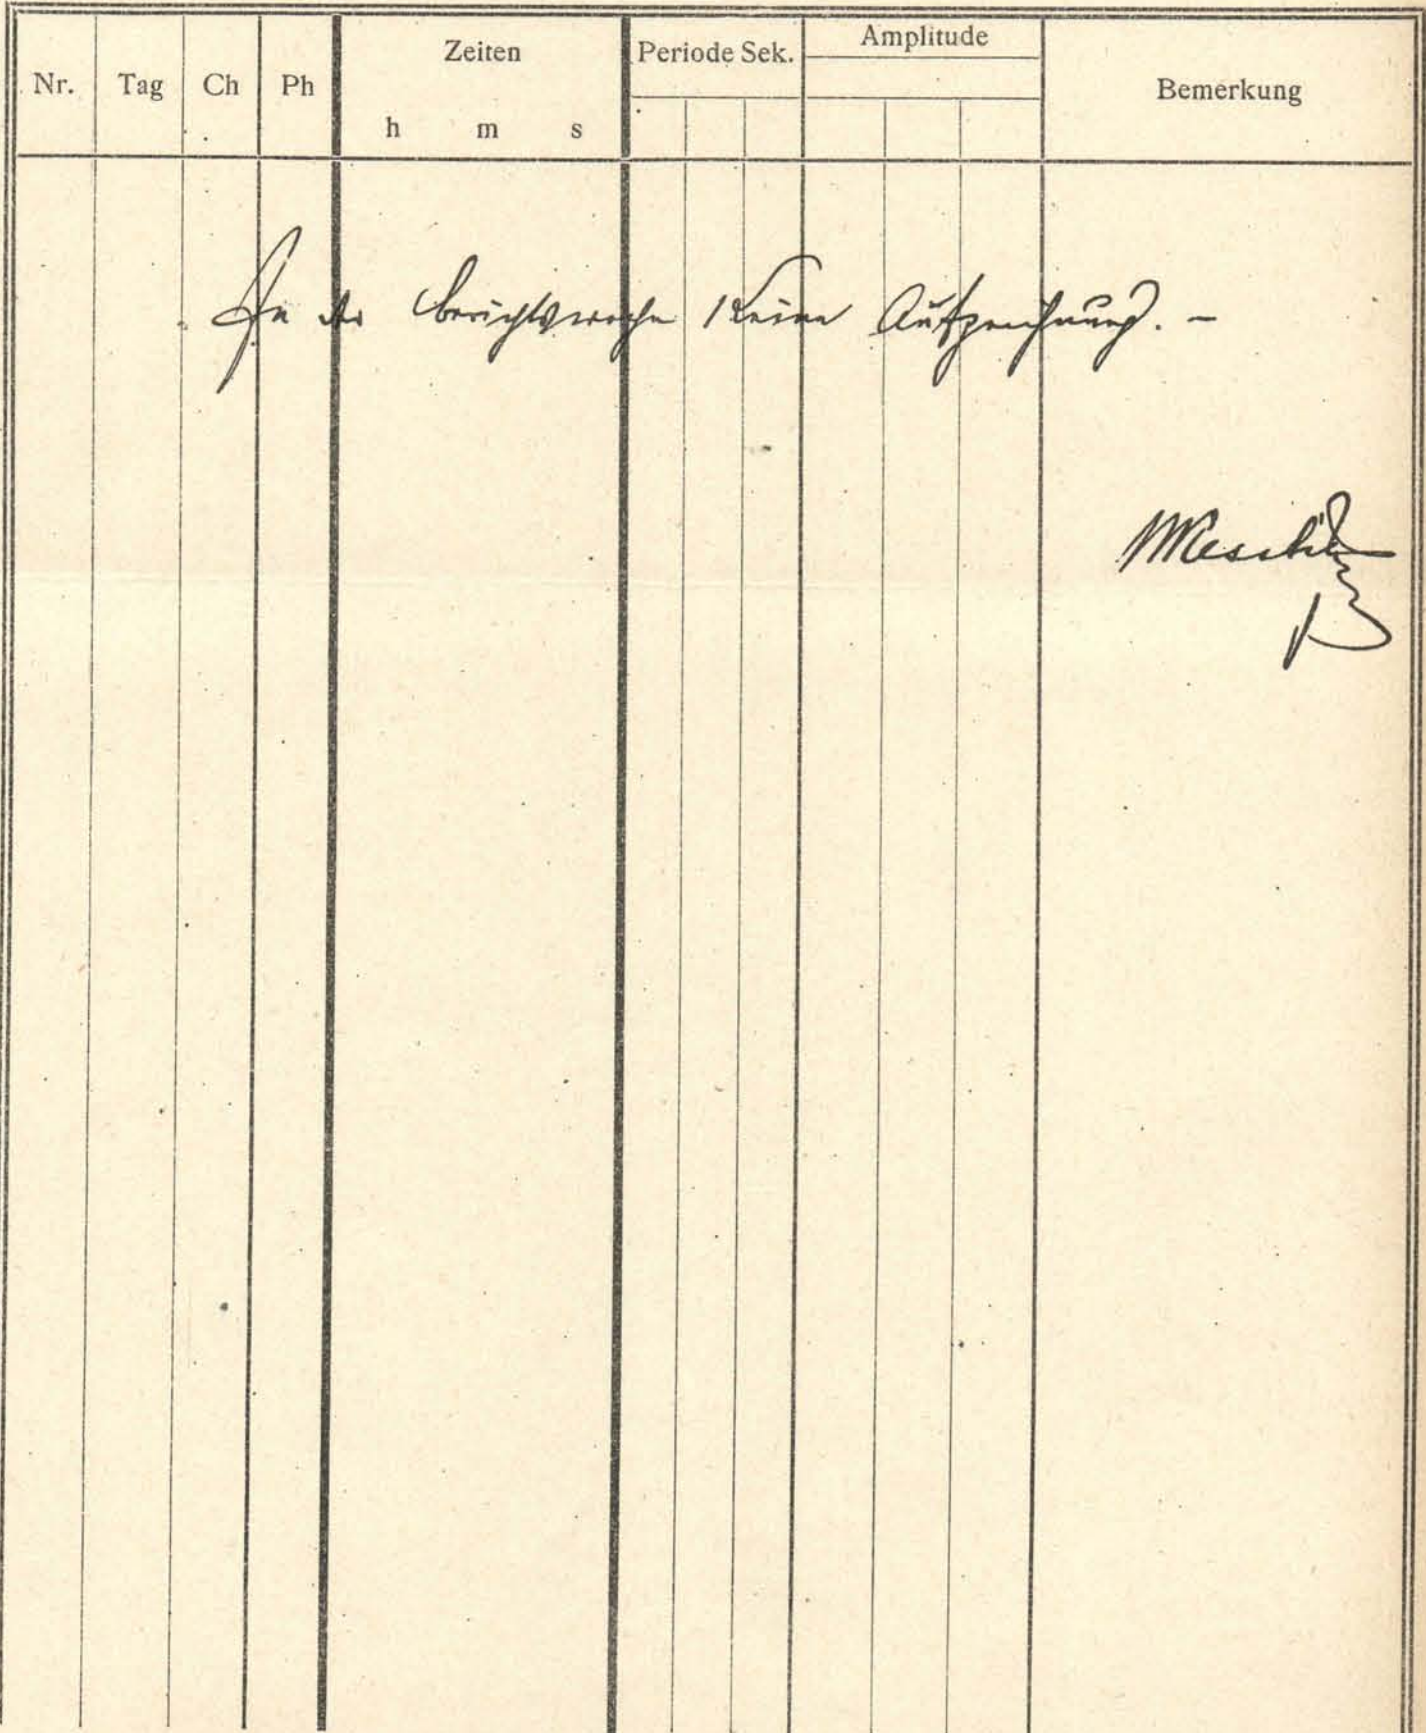 Nr. Tag Ch Ph Zeiten Periode Sek. Amplitude Bemerkung
h m s
In der Berichtswoche keine Aufzeichnung. –